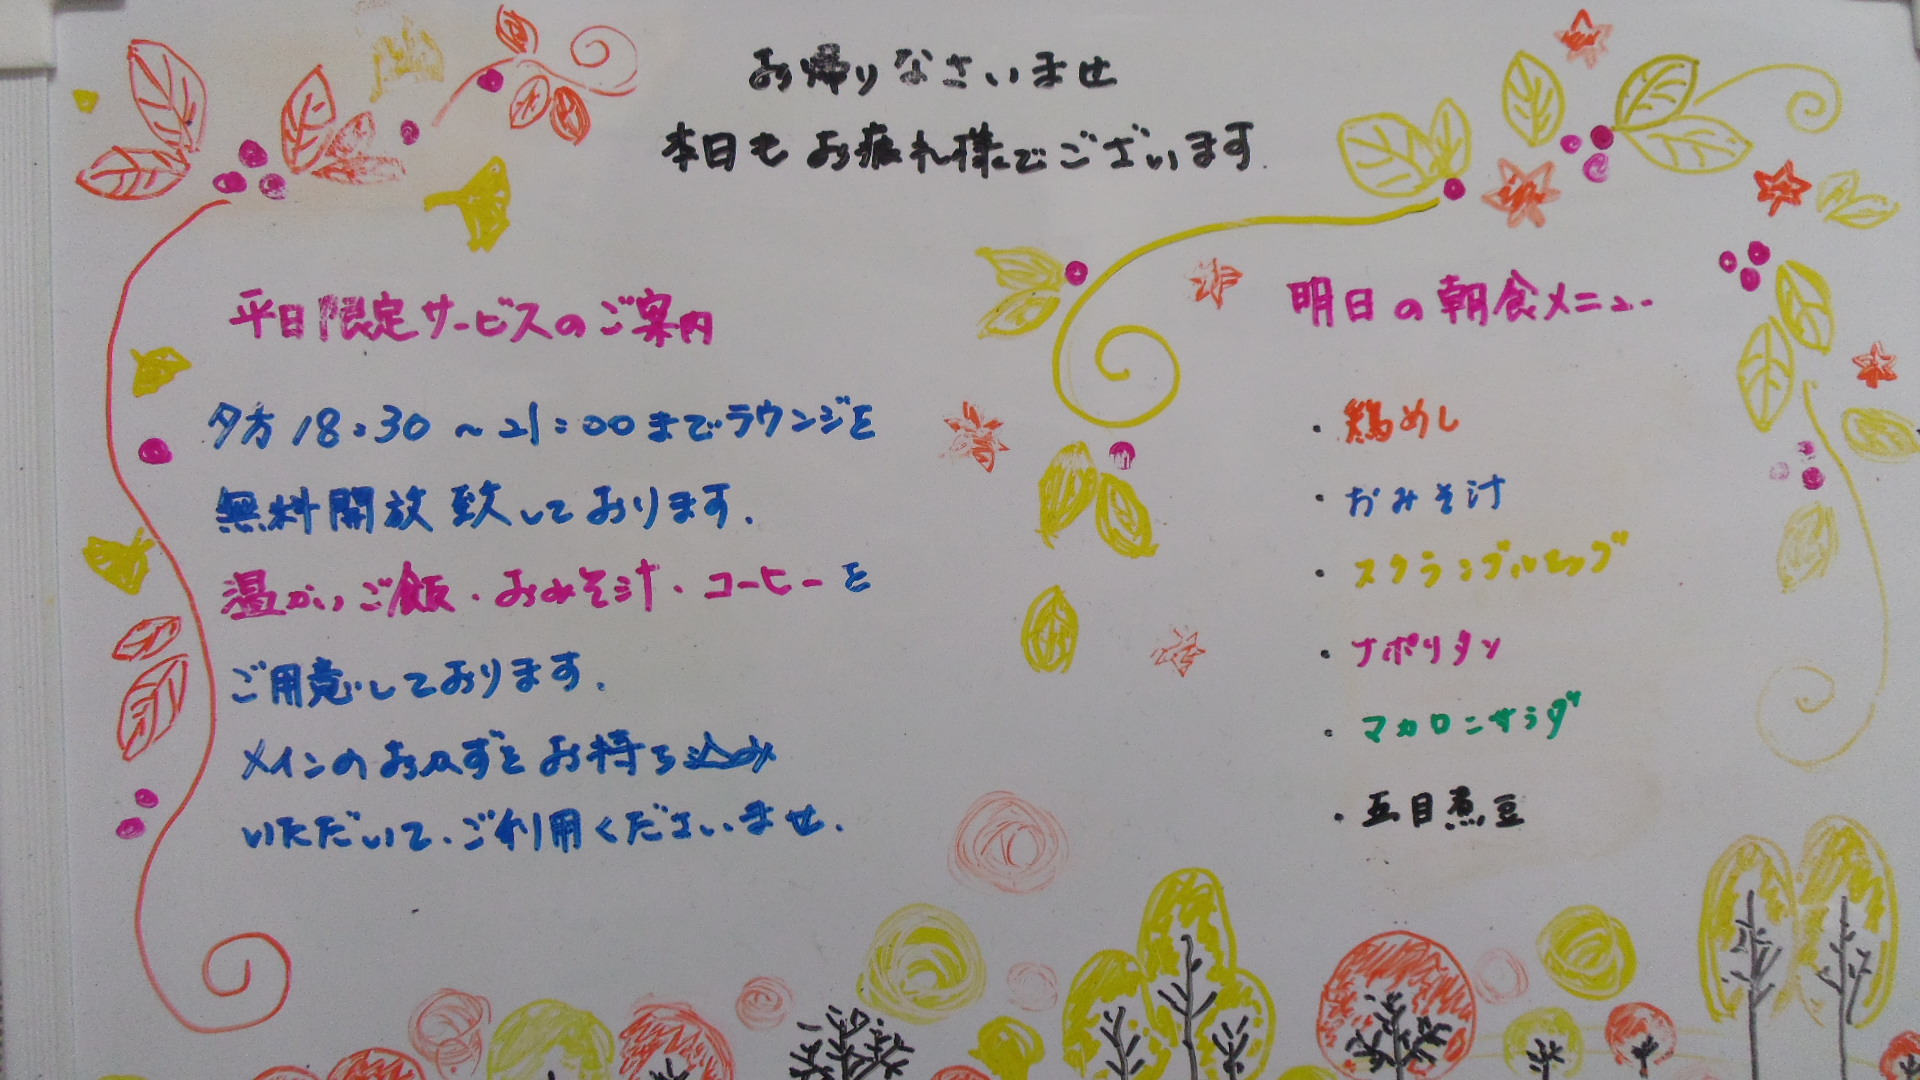 お帰りなさいませ
本日もお疲れ様でございます.
平日限定サービスのご案内
夕方18:30～21:00までラウンジを
無料開放致しております.
温かいご飯・おみそ汁・コーヒーを
ご用意しております.
メインのおかずをお持ち込み
いただいて、ご利用くださいませ.
明日の朝食メニュー
・鶏めし
・おみそ汁
・スクランブルエッグ
・ナポリタン
・マカロニサラダ
・五目煮豆